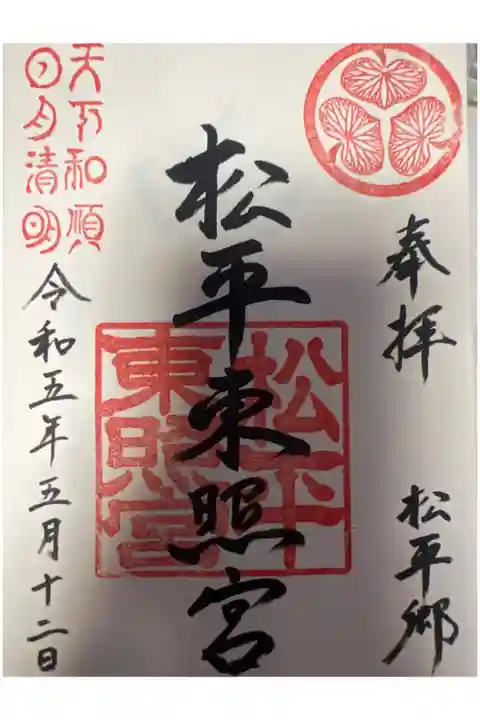 奉拝
松平郷
松平東照宮
松平
東照宮
天下和順
日月清明
令和五年五月十二日